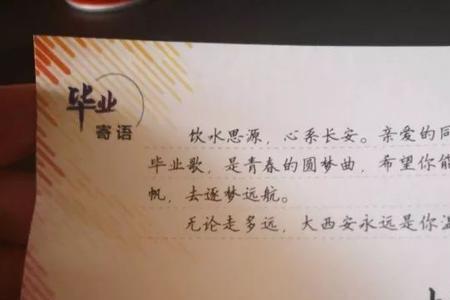 毕业
寄语
饮水思源，心系长安。亲爱的同
毕业歌，是青春的圆梦曲，希望你能
帆，去逐梦远航。
无论走多远，大西安永远是你温